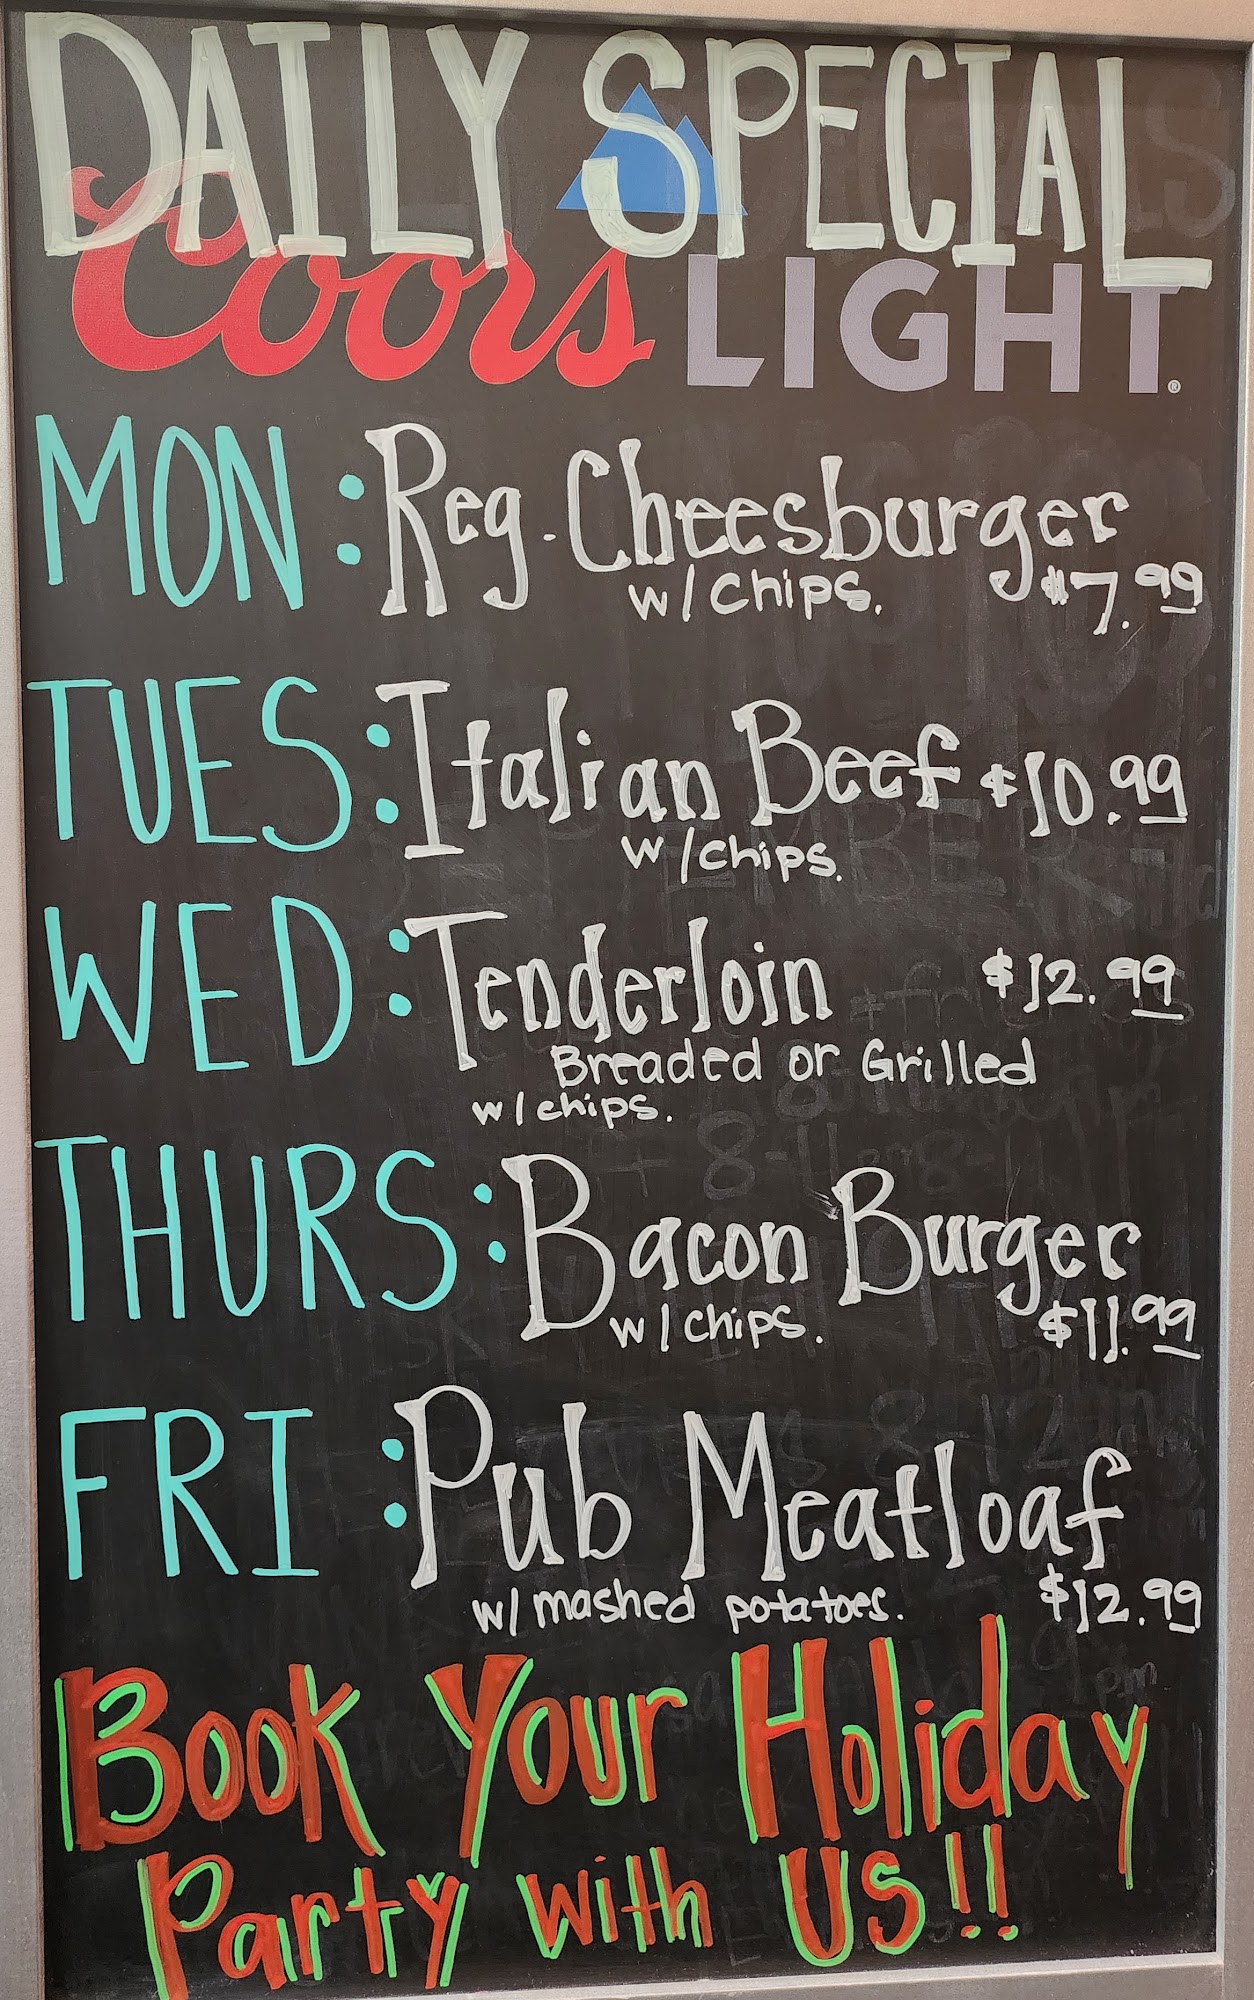 DAILY SPECIAL
Coors LIGHT®
MON: Reg. Cheesburger
w/chips. $7.99
TUES: Italian Beef $10.99
w/chips.
WED: Tenderloin $12.99
Breaded or Grilled
w/chips.
THURS: Bacon Burger
w/chips. $11.99
FRI: Pub Meatloaf
w/ mashed potatoes. $12.99
Book Your Holiday
Party with Us!!